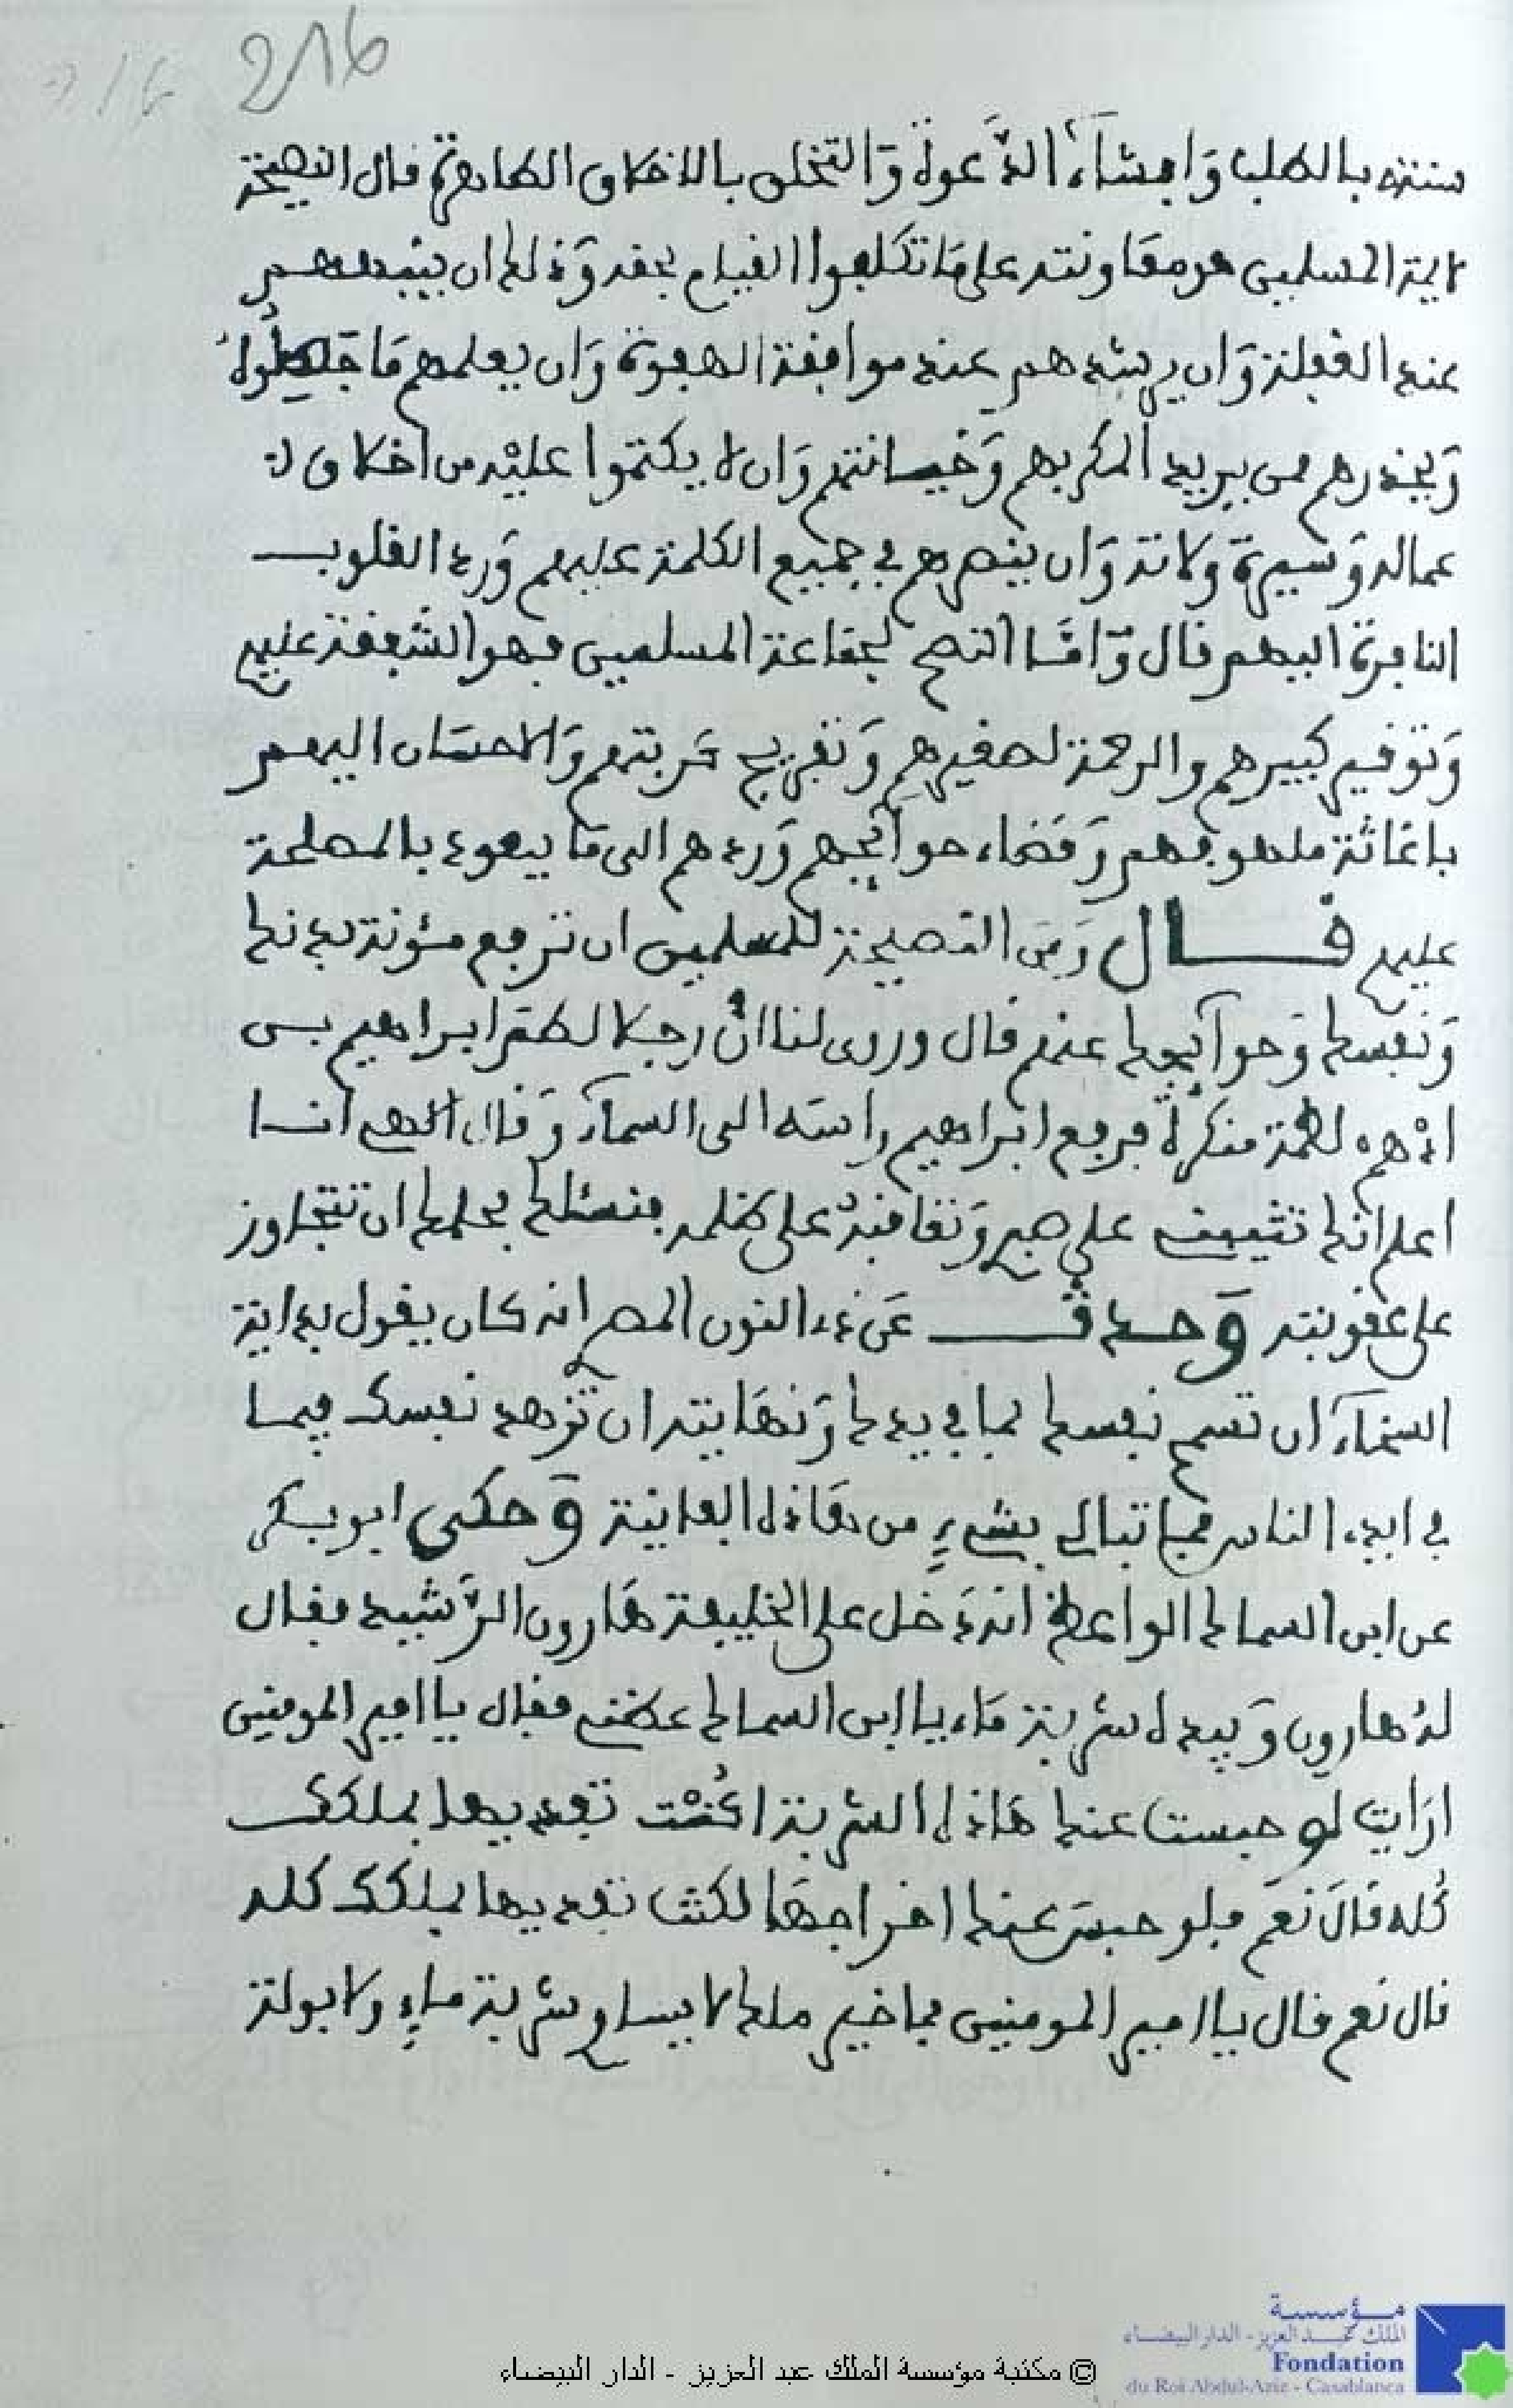 216
سنته بالطلب وَافشَآء الدَّعوة وَالتخلق بالاخلاق الطاهرة قال النصيحة
لايمة المسلمين هو معَاونته على مَا تكلفوا القيام بحقه وَذلك ان ينبههم
عند الغفلة وَان يرشدهم عند موافقة الهفوة وَان يعلمهم مَا جهلوا
وَيحذرهم ممن يريد المكر بهم وَخيانتهم وَان لا يكتموا عليْه من اخلاق
عماله وَسيرة ولاته وَان ينصرهم في جميع الكلمة عليهم وَرد القلوب
النافرة اليهم قال وَامَّا النصح لجمَاعة المسلمين فهو الشفقة عليهم
وَتوقير كبيرهم والرحمة لصغيرهم وَتفريج كربتهم وَالاحسَان اليهم
باغَاثة ملهوفهم وَقضَاء حوآئجهم وَردهم الى مَا يعود بالمصلحة
عليهم قال وَمن النصيحة للمسلمين ان ترفع مئونة بدنك
وَنفسك وَحوآئجك عنهم قال وروى لنا انَّ رجلا لطم ابراهيم بن
ادْهم لطمة منكرة فرفع ابراهيم راسَه الى السمآء وَقال الهي انا
اعلم انك تثيبني على صبري وَتعَاقبهُ على ظلمه فنسئلك بحلمك ان تتجاوز
على عقوبته وَحدث عَن ذي النون المصري انه كان يقول بداية
السخَآء ان تسمح نفسك بما في يدك وَنهَايته ان تزهد نفسك فيما
في ايدي الناس فما تبالي بشيءٍ من هَاذه الفانية وَحكى ابو بكر
عن ابن السماك الواعظ انه دَخل على الخليفة هَارون الرَّشيد فقال
لهُ هارون وَبيده شربة مَاء يا ابن السماك عظني فقال يا امير المومنين
ارَايت لو حبست عنك هَاذه الشربة اكُنْت تفديها بملكك
كُله قالَ نعَم فلو حبسَ عنك اخراجهَا لكنت تفديها بملكك كله
قال نعم قال يا امير المومنين فما خير ملك لا يساوي شربة ماءٍ ولا بولة
© مكتبة مؤسسة الملك عبد العزيز - الدار البيضاء
مؤسسة
الملك عبد العزيز - الدار البيضاء
Fondation
du Roi Abdul-Aziz - Casablanca